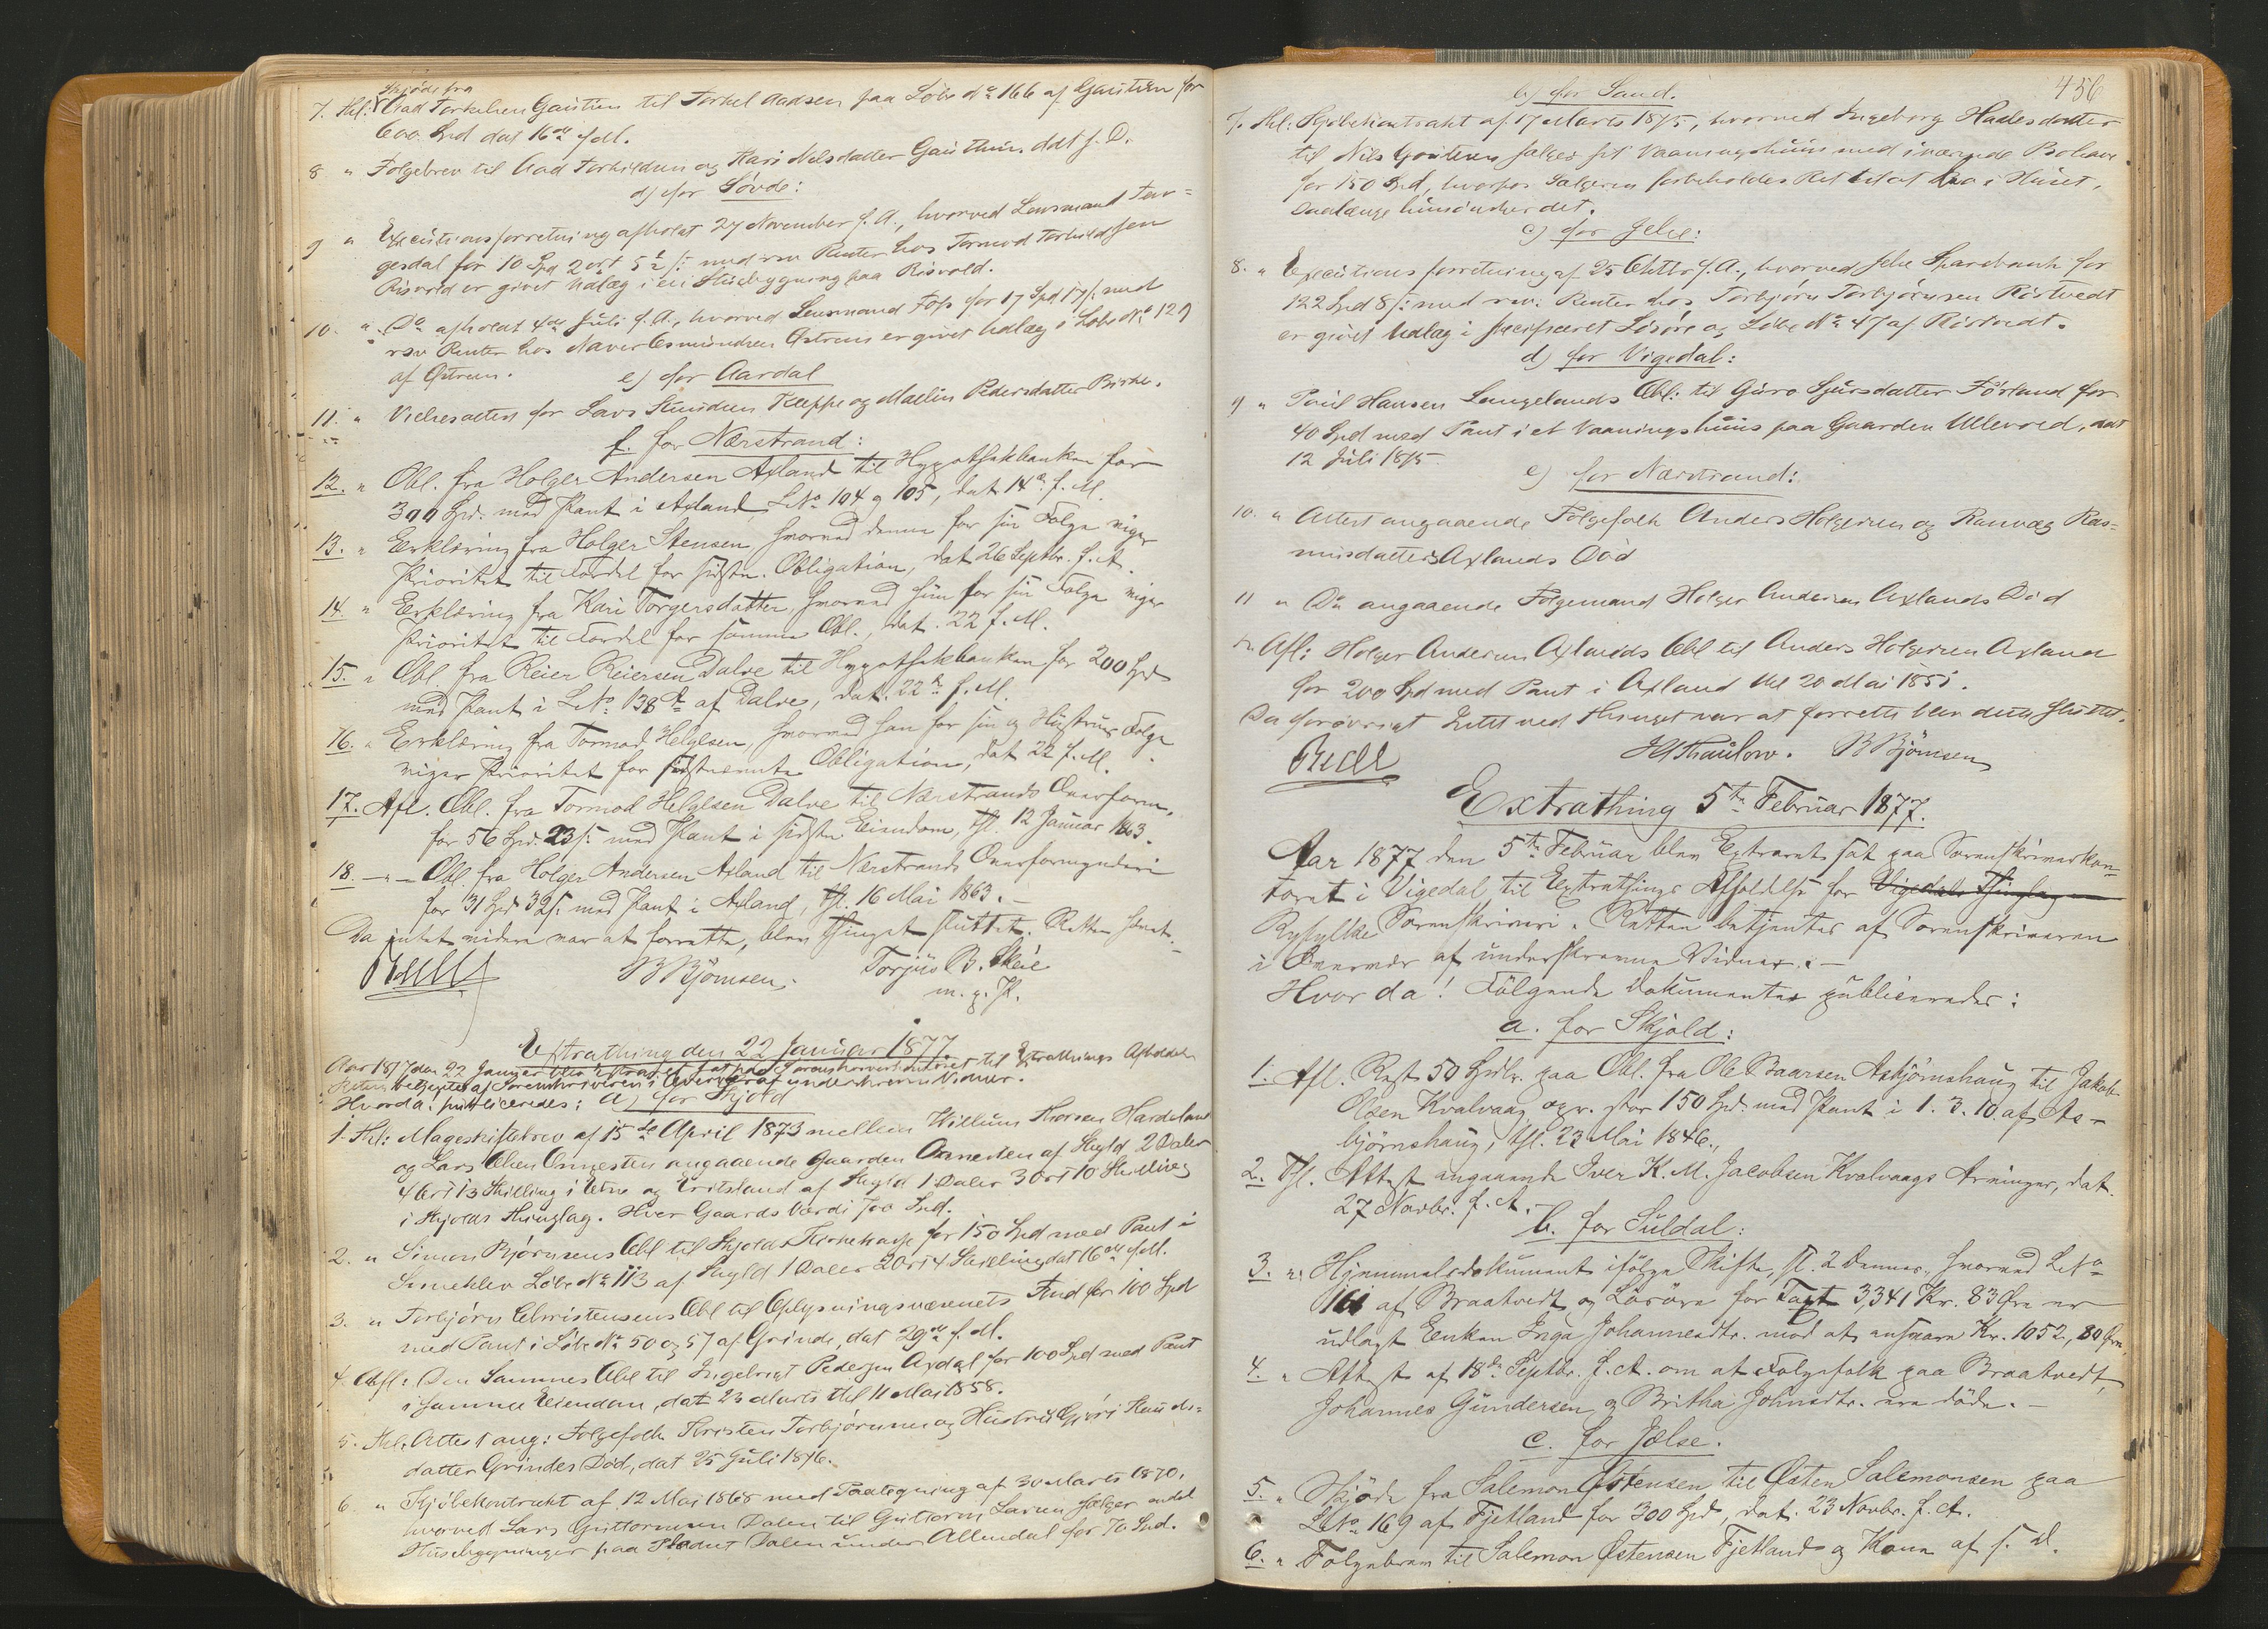 Skjøde fra
7. Thl: Aad Torkelsen Gautun til Torkel Aadsen paa Løbe No 166 af Gautun for
600 Spd dat 16de f.M.
8 " Følgebrev til Aad Torkildsen og Kari Nilsdatter Gautun, ddt s. D.
d) for Søvde:
9 " Executionsforretning afholdt 27 November f. A., hvorved Lensmand Ten=
gesdal for 10 Spd 2 ort 5½ s. med rsv Renter hos Tormod Torkildsen
Risvold er givet Udlæg i en Huusbygning paa Risvold.
10. " Do afholdt 4de Juli f. A., hvorved Lensmand Foss for 17 Spd 17 s. med
rsv Renter hos Osmundsen Østrem er givet Udlæg i Løbe No 129
af Østrem.
e) for Aardal
11. " Vielsesattest for Lars Knudsen Kleppe og Mallin Pedersdatter Birke.
f. for Nærstrand:
12. " Obl. fra Holger Andersen Axland til Hypothekbanken for
300 Spd. med Pant i Axland, LNo 104 og 105, dat 14de f. M.
13. " Erklæring fra Holger Stensen, hvorved denne for sin Følge viger
Prioritet til Fordel for sidstn. Obligation, dat 26 Septbr. f. A.
14. " Erklæring fra Kari Torgersdatter, hvorved hun for sin Følge viger
Prioritet til Fordel for samme Obl., dat. 22 f. M.
15. " Obl. fra Reier Reiersen Dalve til Hypothekbanken for 200 Spd
med Pant i LNo. 138 af Dalve, dat. 22de f. M.
16. " Erklæring fra Tormod Helgesen, hvorved han for sin og Hustrues Følge
viger Prioritet for sidstnævnte Obligation, dat 22 f. M.
17. Afl. Obl. fra Tormod Helgesen Dalve til Nærstrands Overform.
for 56 Spd. 23 s. med Pant i sidstn Eiendom, thl. 12 Januar 1863.
18. — " — Obl. fra Holger Andersen Axland til Nærstrands Overformynderi
for 31 Spd 32 s. med Pant i Axland, thl. 16 Mai 1863. —
Da intet videre var at forrette, blev Thinget sluttet. Retten hævet. —
B Bjørnsen. Torjus B. Skeie
m. p. P.
Extrathing den 22 Januar 1877.
Aar 1877 den 22 Januar blev Extraret sat paa Sorenskriverkontoret til Extrathings Afholdelse
Retten betjentes af Sorenskriveren i Overvær af underskrevne Vidner.
Hvorda: publiceredes: a) for Skjold
1. Thl: Mageskiftebrev af 15de April 1873 mellem Willum Thorsen Hardeland
og Lars Olsen Ønnesten angaaende Gaarden Ønnesten af Skyld 2 Daler
4 Ort 13 Skilling i Etne og Eritsland af Skyld 1 Daler 3 Ort 10 Skilling
i Skjolds Thinglag. Hver Gaards Værdi 700 Spd.
2. " Simon Bjørnsens Obl til Skjolds Kirkekasse for 150 Spd med Pant i
Løbe No 113 af Skyld 1 Daler 2 Ort 4 Skilling dat 16de f.M.
3. " Torbjørn Christensens Obl til Oplysningsvæsenets Fond for 100 Spd
med Pant i Løbe No 50 og 57 af Grinde, dat 29de f. M.
4. Afl: Den Sammes Obl til Ingebrigt Pedersen Axdal for 100 Spd med Pant
i samme Eiendom, dat 23 Marts thl 11 Mai 1858.
5. Thl: Attest ang: Følgefolk Kristen Torbjørnsen og Hustru Gjøri Knuds=
datter Grindes Død, dat 25 Juli 1876.
6 " Kjøbekontrakt af 12 Mai 1868 med Paategning af 30 Marts 1870,
hvorved Lars Guttormsen Dalen til Guttorm Larsen sælger endel
Husebygninger paa Pladset Dalen under Allendal for 70 Spd.
456
b) for Sand.
7. Thl: Kjøbekontrakt af 17 Marts 1875, hvorved Ingeborg Hadlesdatter
til Nils Gautun sælger sit Vaaningshuus med iværende Bohave
for 150 Spd, hvorhos Sælgeren forbeholdes Ret til at bo i Huset,
saalænge hun ønsker det.
c) for Jelse:
8. " Executions forretning af 25 Oktbr f. A., hvorved Jelse Sparebank for
122 Spd 8 s. med rsv: Renter hos Torbjørn Torbjørnsen Røstvedt
er givet Udlæg i specificeret Løsøre og Løbe No 47 af Røstvedt.
d) for Vigedal:
9 " Poul Hansen Langelands Obl: til Guro Sjursdatter Førland for
40 Spd med Pant i et Vaaningshuus paa Gaarden Ullevred, dat
12 Juli 1875.
e) for Nærstrand:
10. " Attest angaaende Følgefolk Anders Holgersen og Ranvæg Ras=
musdatters Axlands Død
11 " Do angaaende Følgemand Holger Andersen Axlands Død
12 Afl: Holger Andersen Axlands Obl til Anders Holgersen Axland
for 200 Spd med Pant i Axland thl 20 Mai 1855.
Da forøvrigt Intet ved Thinget var at forrette blev dette sluttet.
Thaulow. B Bjørnsen
Extrathing 5te Februar 1877.
Aar 1877 den 5te Februar blev Extraret sat paa Sorenskriverkon=
toret i Vigedal til Extrathings Afholdelse for Vigedals Thinglag
Ryfylke Sorenskriveri. Retten betjentes af Sorenskriveren
i Overvær af underskrevne Vidner. —
Hvor da! Følgende Dokumenter publiceredes:
a. for Skjold:
1. Afl. Rest 50 Spdlr. paa Obl. fra Ole Baarsen Asbjørnshaug til Jakob
Olsen Kvalvaag opr. stor 150 Spd. med Pant i 1. 3. 10. af As-
bjørnshaug, thl. 23 Mai 1846.,
2. Thl. Attest angaaende Iver K. M. Jacobsen Kvalvaags Arvinger, dat.
27 Novbr. f. A.
b. for Suldal:
3. " Hjemmelsdokument ifølge Skifte, sl. 2 Dennes, hvorved LNo
101 af Braatvedt og Løsøre for Taxt 3,341 Kr. 83 Øre er
udlagt Enken Inga Johannesdtr. mod at ansvare Kr. 1052, 80 Øre.
4. " Attest af 18de Septbr. f. A. om at Følgefolk paa Braatvedt,
Johannes Gundersen og Britha Johnsdtr. ere døde. —
c. for Jælse.
5. " Skjøde fra Salemon Østensen til Østen Salemonsen paa
LNo 169 af Fjetland for 300 Spd, dat. 23 Novbr. f. A.
6. " Følgebrev til Salemon Østensen Fjetland og Kone af s. D.